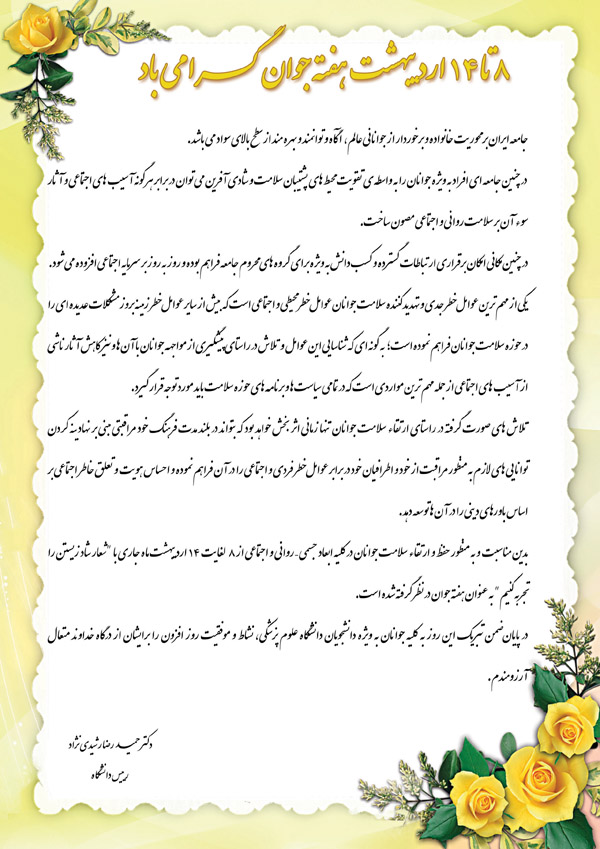 ۸ تا ۱۴ اردیبهشت هفته جوان گرامی باد
جامعه ایران بر محوریت خانواده و برخوردار از جوانانی عالم، آگاه و توانمند و بهره مند از سطح بالای سواد می باشد.
در چنین جامعه ای افراد به ویژه جوانان را به واسطه ی تقویت محیط های پشتیبان سلامت و شادی آفرین می توان در برابر هر گونه آسیب های اجتماعی و آثار
سوء آن بر سلامت روانی و اجتماعی مصون ساخت.
در چنین مکانی امکان برقراری ارتباطات گسترده و کسب دانش به ویژه برای گروه های محروم جامعه فراهم بوده و روز به روز بر سرمایه اجتماعی افزوده می شود.
یکی از مهم ترین عوامل خطر جدی و تهدید کننده سلامت جوانان عوامل خطر محیطی و اجتماعی است که بیش از سایر عوامل خطر زمینه بروز مشکلات عدیده ای را
در حوزه سلامت جوانان فراهم نموده است؛ به گونه ای که شناسایی این عوامل و تلاش در راستای پیشگیری از مواجهه جوانان با آن ها و نیز کاهش آثار ناشی
از آسیب های اجتماعی از جمله مهم ترین مواردی است که در تمامی سیاست ها و برنامه های حوزه سلامت باید مورد توجه قرار گیرد.
تلاش های صورت گرفته در راستای ارتقاء سلامت جوانان تنها زمانی اثر بخش خواهد بود که بتواند در بلند مدت فرهنگ خود مراقبتی مبنی بر نهادینه کردن
توانایی های لازم به منظور مراقبت از خود و اطرافیان خود در برابر عوامل خطر فردی و اجتماعی را در آن فراهم نموده و احساس هویت و تعلق خاطر اجتماعی بر
اساس باور های دینی را در آن ها توسعه دهد.
بدین مناسبت و به منظور حفظ و ارتقاء سلامت جوانان در کلیه ابعاد جسمی-روانی و اجتماعی از ۸ لغایت ۱۴ اردیبهشت ماه جاری با "شعار شاد زیستن را
تجربه کنیم" به عنوان هفته جوان در نظر گرفته شده است.
در پایان ضمن تبریک این روز به کلیه جوانان به ویژه دانشجویان دانشگاه علوم پزشکی، نشاط و موفقیت روز افزون را برایشان از درگاه خداوند متعال
آرزومندم.
دکتر حمید رضا رشیدی نژاد
رییس دانشگاه